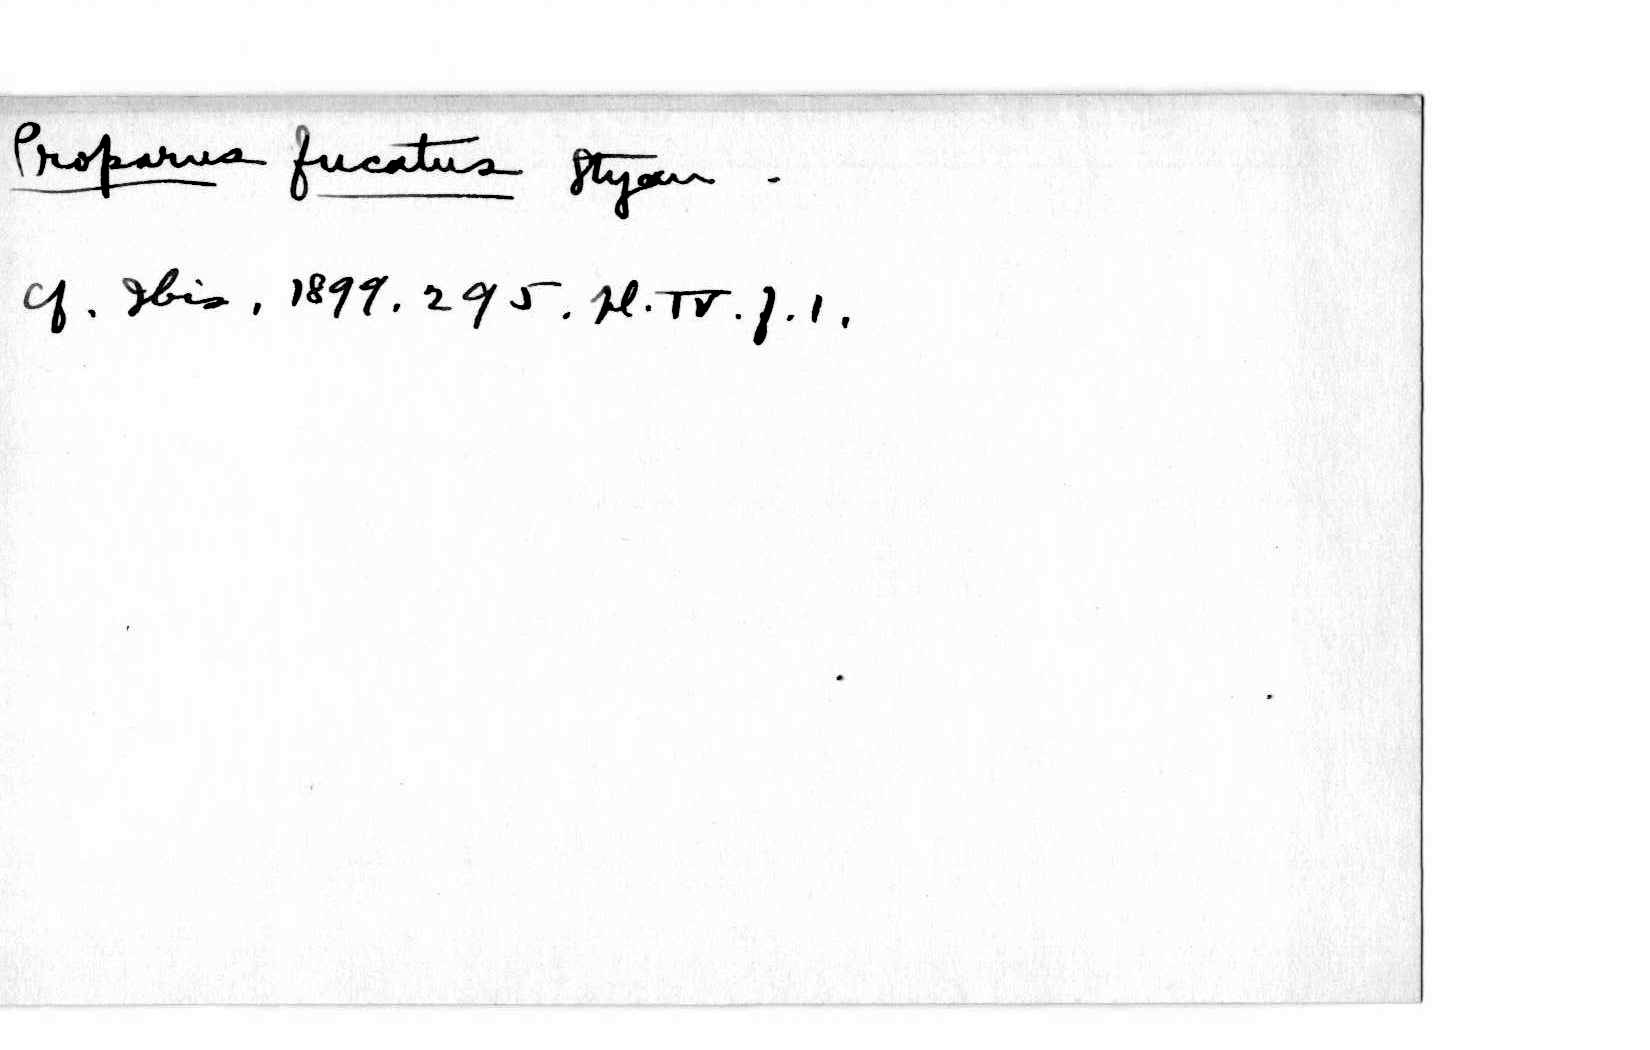 Proparus fucatus Styan -
cf. Ibis, 1899. 295. pl. IV. f. 1.